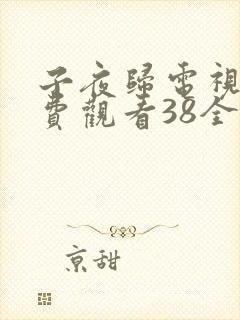 子夜歸電視
費觀看38全
京甜